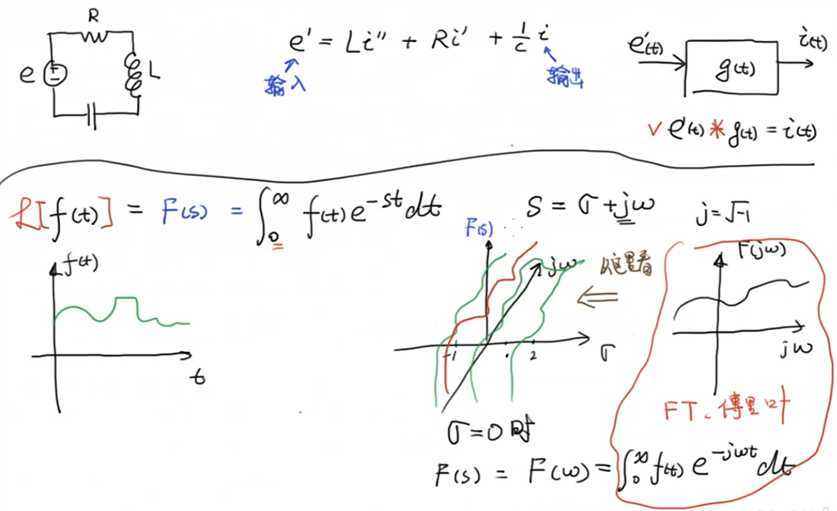 R
e
L
e' = Li'' + Ri' + 1/c i
输入
输出
e'(t)
g(t)
i(t)
∨ e'(t) * g(t) = i(t)
ℒ[f(t)] = F(s) = ∫₀^∞ f(t) e^{-st} dt
S = σ + jω
j = √-1
f(t)
t
F(s)
jω
-1
2
σ
F(jω)
jω
FT、傅里叶
σ = 0 时
F(s) = F(ω) = ∫₀^∞ f(t) e^{-jωt} dt